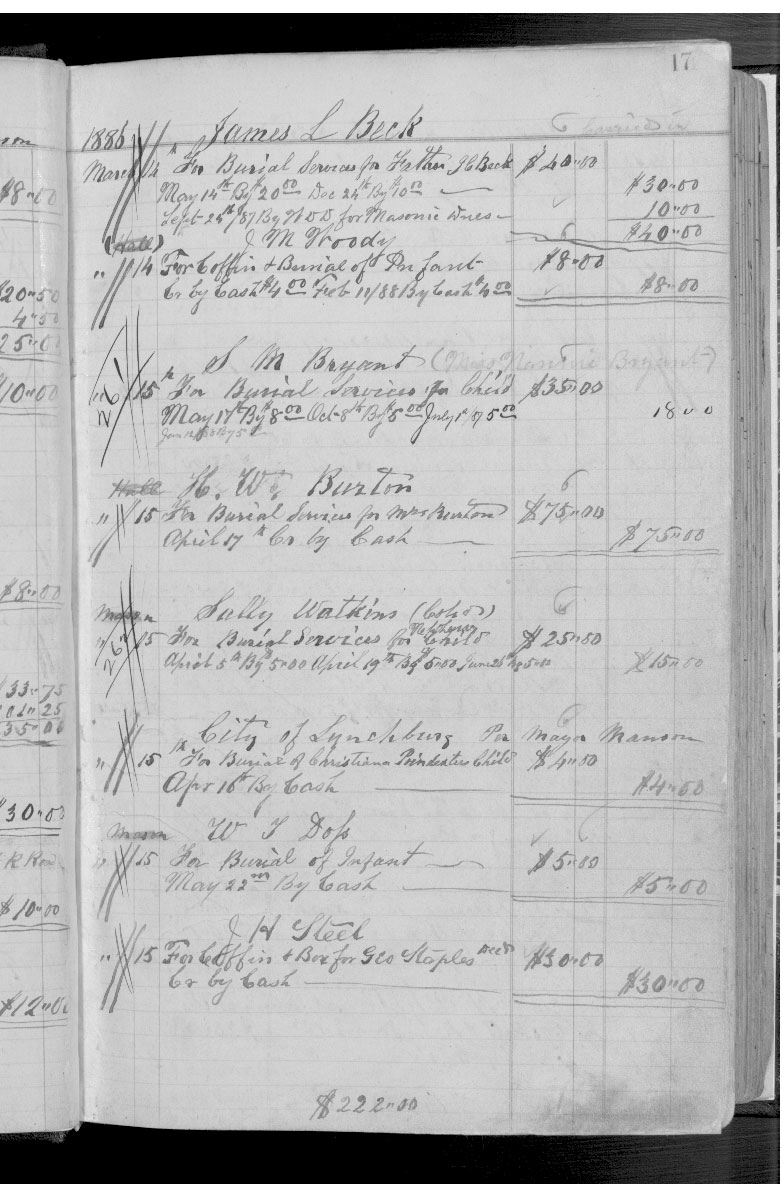 17
1886 James L Beck carried in
March 14th For Burial Services for Father J C Beck $40"00
May 14th By $20 00 Dec 24th By $10 00 — $30"00
Sept 24th /87 By W D D for Masonic Dues — 10"00
$40"00
(Hall) J M Woody
" 14 For Coffin & Burial of Infant $8"00
Cr by Cash $4 00 Feb 11/88 By Cash $4 00 $8"00
S M Bryant (Miss Nannie Bryant)
261
" 15th For Burial Services for Child $35"00
May 17th By $8 00 Oct 8th By $5 00 July 1st /87 5 00 18 00
Hall H. W. Burton
" 15 For Burial Services for Mrs Burton $75"00
April 17th Cr by Cash — $75"00
Mason Sally Watkins (Cold)
" 15 For Burial Services for Child $25"00
April 5th By $5"00 April 19th By $5"00 June 26th By 5"00 $15"00
City of Lynchburg Per Mayor Manson
" 15th For Burial of Christiana Poindexters Child $4"00
Apr 16th By Cash — $4"00
Mason W T Doss
" 15 For Burial of Infant — $5"00
May 22nd By Cash — $5"00
J H Steel
" 15 For Coffin & Box for Geo Staples Decd $30"00
Cr by Cash — $30"00
$222"00